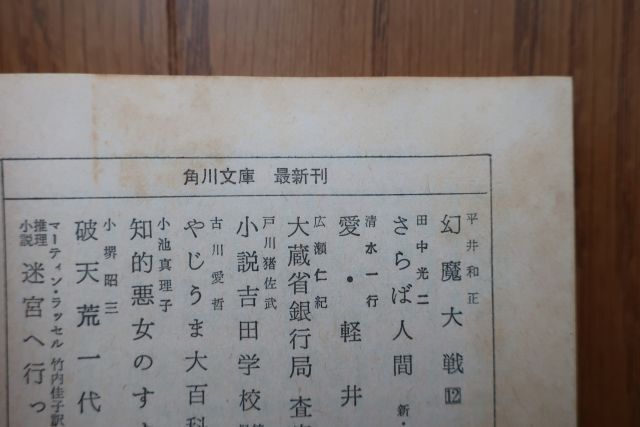 角川文庫 最新刊
平井和正
幻魔大戦12
田中光二
さらば人間 新・
清水一行
愛・軽井
広瀬仁紀
大蔵省銀行局 査
戸川猪佐武
小説吉田学校
古川愛哲
やじうま大百科
小池真理子
知的悪女のす
小堺昭三
破天荒一代
マーティン・ラッセル 竹内佳子訳
推理小説 迷宮へ行っ